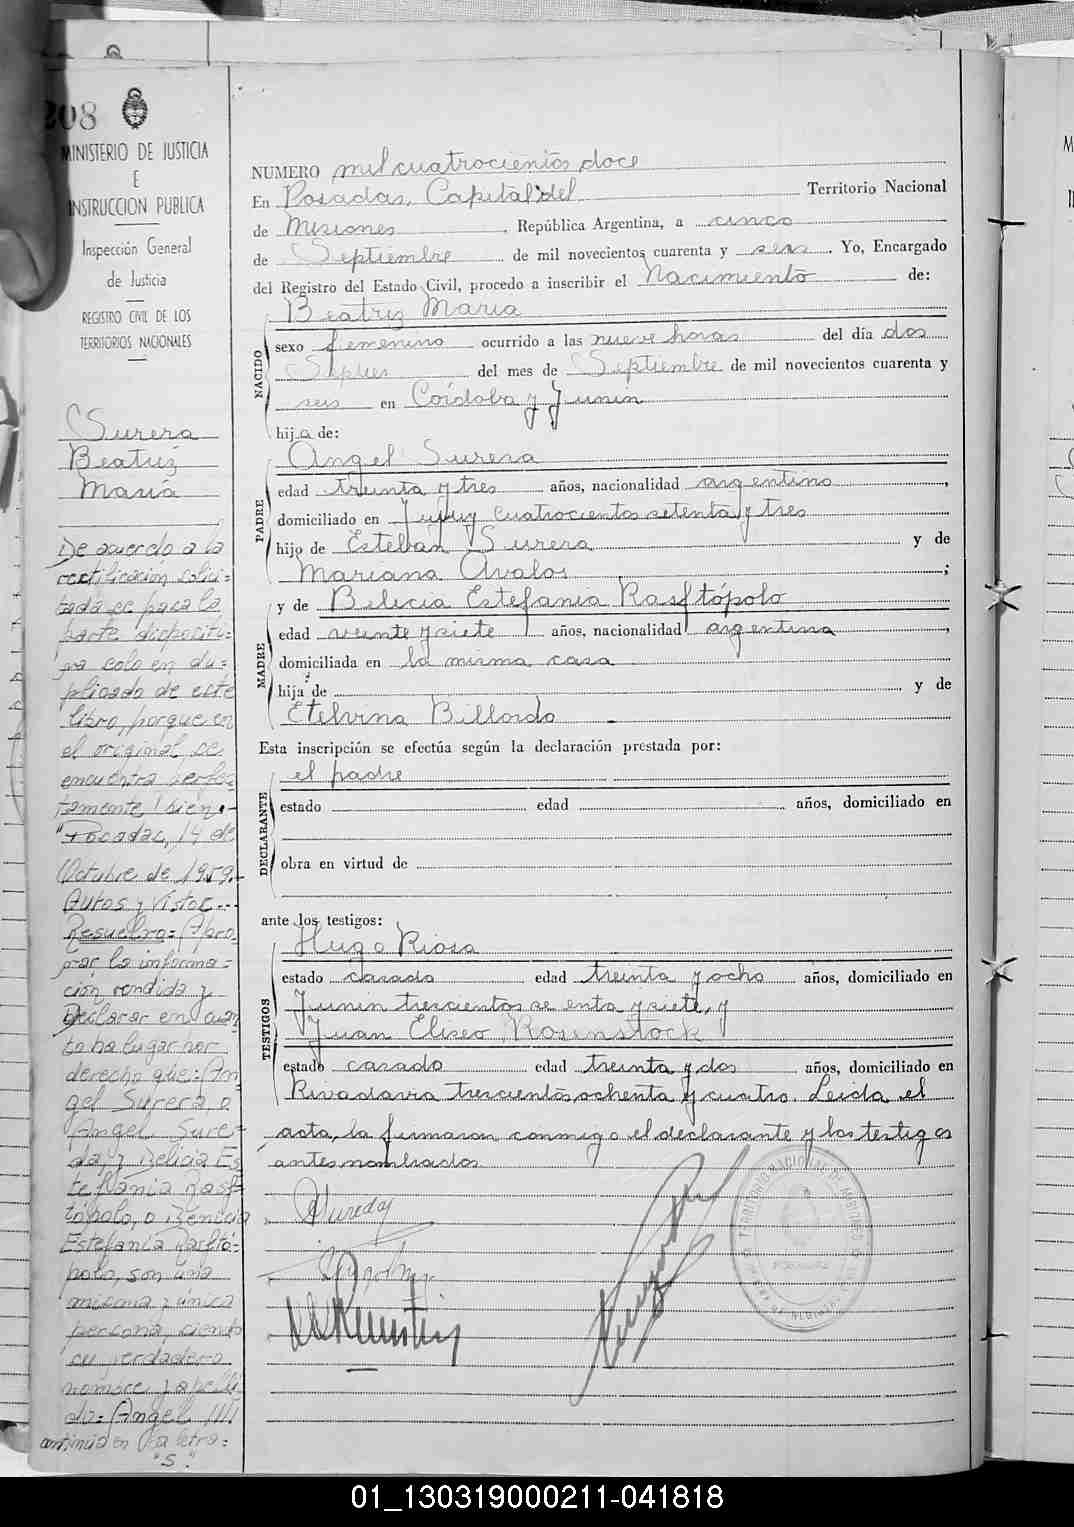 208
MINISTERIO DE JUSTICIA
E
INSTRUCCION PUBLICA
Inspección General
de Justicia
REGISTRO CIVIL DE LOS
TERRITORIOS NACIONALES
Surera
Beatriz
María
De acuerdo a la
rectificación solici=
tada se pasa la
parte dispositi=
va solo en du=
plicado de este
libro, porque en
el original se
encuentra perfec
tamente bien.-
"Posadas, 14 de
Octubre de 1959.-
Autos y Vistos...
Resuelvo: Apro-
var la informa=
ción rendida y
Declarar en cuan
to ha lugar por
derecho que: An
gel Surera o
Angel Sure-
da, y Belicia Es
tefanía Rasf-
tópolo, o Benicia
Estefanía Rasftó-
polo, son una
misma y única
persona, siendo
su verdadero
nombre y apelli
do: Angel
continúa en la letra:
"S."
NUMERO mil cuatrocientos doce
En Posadas, Capital del Territorio Nacional
de Misiones, República Argentina, a cinco
de Septiembre de mil novecientos cuarenta y seis. Yo, Encargado
del Registro del Estado Civil, procedo a inscribir el Nacimiento de:
NACIDO
Beatriz Maria
sexo femenino ocurrido a las nueve horas del día dos
del mes de Septiembre de mil novecientos cuarenta y
seis en Córdoba y Junin
hija de:
PADRE
Angel Surera
edad treinta y tres años, nacionalidad argentino,
domiciliado en Jujuy cuatrocientos setenta y tres
hijo de Esteban Surera y de
Mariana Avalos;
MADRE
y de Belicia Estefania Rasftópolo
edad veinte y siete años, nacionalidad argentina,
domiciliada en la misma casa
hija de y de
Etelvina Billordo
Esta inscripción se efectúa según la declaración prestada por:
DECLARANTE
el padre
estado edad años, domiciliado en
obra en virtud de
ante los testigos:
TESTIGOS
Hugo Riosa
estado casado edad treinta y ocho años, domiciliado en
Junin trescientos se enta y siete, y
Juan Eliseo Rosenstock
estado casado edad treinta y dos años, domiciliado en
Rivadavia trescientos ochenta y cuatro. Leida el
acta, la firmaron conmigo el declarante y los testigos
antes nombrados
01_130319000211-041818